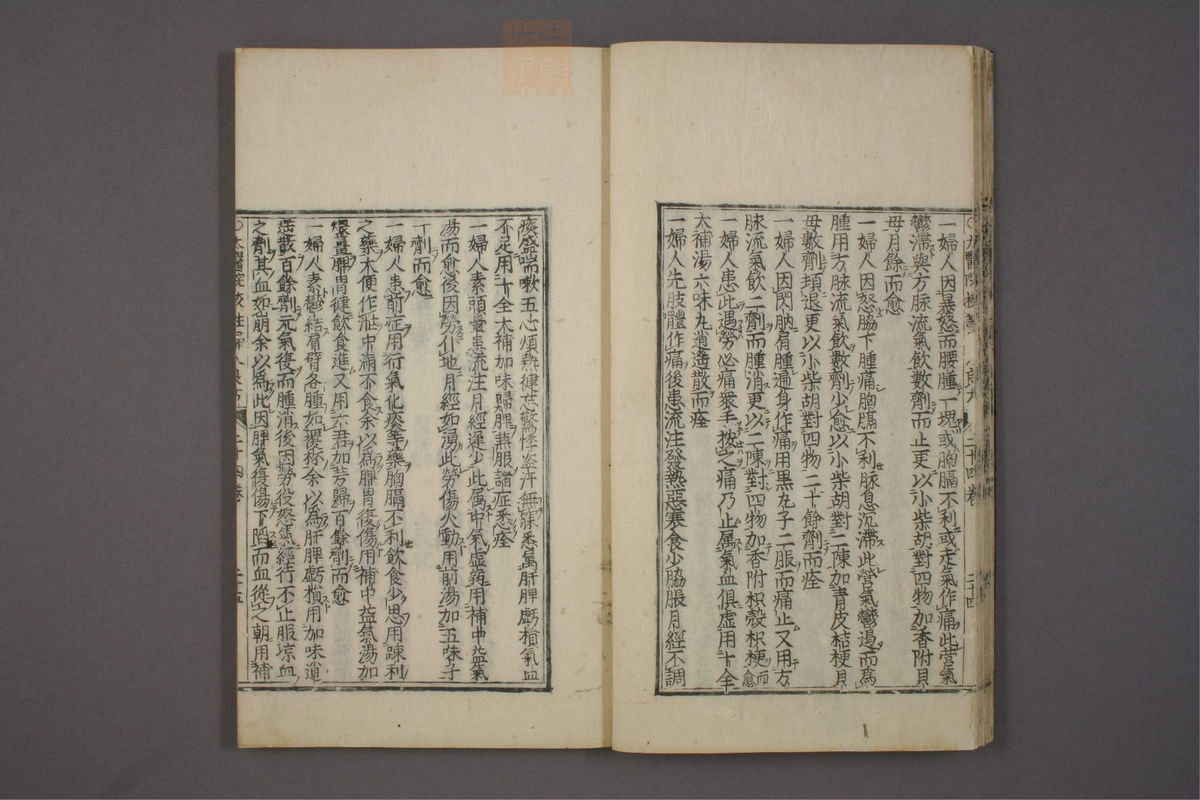 一婦人因暴怒而腰腫一塊或胸膈不利或走氣作痛此营氣
鬱滯與方脉流氣飲數劑而止更以小柴胡對四物加香附貝
母月餘而愈
一婦人因怒脇下腫痛胸膈不利脉息沉滯此營氣鬱遏而為
腫用方脉流氣飲數劑少愈以小柴胡對二陳加青皮桔梗貝
母數劑頓退更以小柴胡對四物二十餘劑而痊
一婦人因閃肭肩腫遍身作痛用黒丸子二服而痛止又用方
脉流氣飲二劑而腫消更以二陳對四物加香附枳殼桔梗而愈
一婦人患此遇勞必痛衆手按之痛乃止属氣血俱虚用十全
大補湯六味丸逍遙散而痊
一婦人先肢體作痛後患流注發熱惡寒食少脇脹月經不調
痰盛喘嗽五心煩熱健忘驚悸盗汗無寐悉属肝脾虧損氣血
不足用十全大補加味歸脾兼服諸症悉痊
一婦人素頭暈患流注月經遲少此属中氣虚弱用補中益氣
湯而愈後因勞仆地月經如湧此勞傷火動用前湯加五味子
一劑而愈
一婦人患前症用行氣化痰等藥胸膈不利飲食少思用疎利
之藥大便作泄中滿不食余以為脾胃復傷用補中益氣湯加
脾胃健飲食進又用六君加芎歸百餘劑而愈
一婦人素鬱結肩臂各腫如覆杯余以為肝脾虧損用加味逍
遙散百餘劑元氣復而腫消後因勞役怒氣經行不止服凉血
之劑其血如崩余以為此因脾氣復傷下陷而血從之朝用補